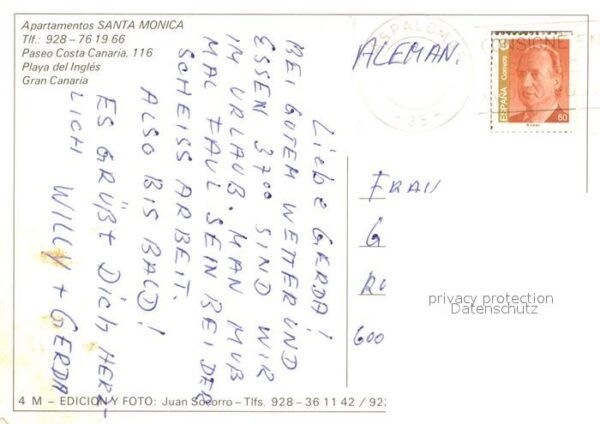 Apartamentos SANTA MONICA
Tlf.: 928 - 76 19 66
Paseo Costa Canaria, 116
Playa del Inglés
Gran Canaria
Liebe GERDA!
BEI GUTEM WETTER UND
ESSEN 37°° SIND WIR
IM URLAUB. MAN MUß
MAL FAUL SEIN BEI DER
SCHEISS ARBEIT.
ALSO BIS BALD!
ES GRÜßT DICH HERZ-
LICH WILLY + GERDA
ALEMAN.
ESPAÑA
Correos
60
- 35 -
FRAU
G
RU
600
privacy protection
Datenschutz
4 M – EDICION Y FOTO: Juan Socorro – Tlfs. 928 - 36 11 42 / 92